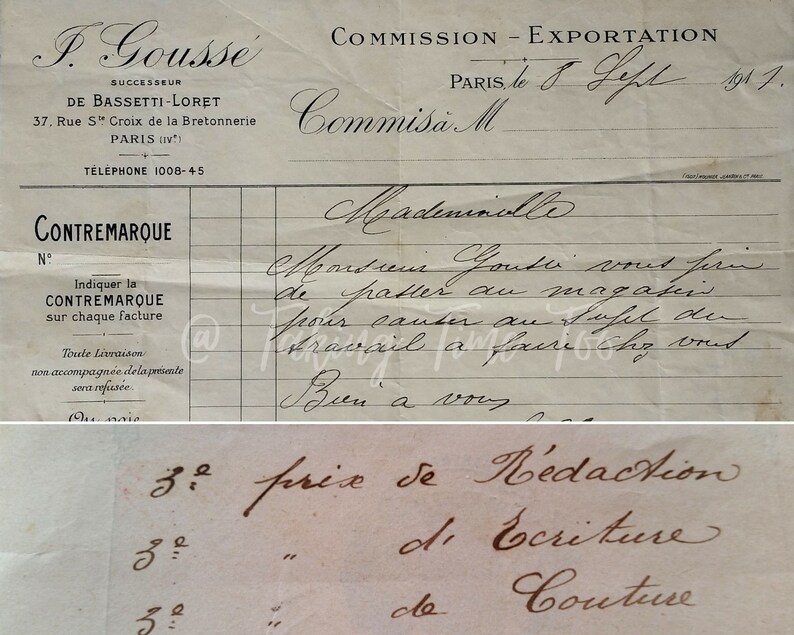 F. Goussé
SUCCESSEUR
DE BASSETTI-LORET
37, Rue Ste Croix de la Bretonnerie
PARIS (IVe)
TÉLÉPHONE 1008-45
COMMISSION - EXPORTATION
PARIS, le 8 Sept 1911.
Commis à M
CONTREMARQUE
N°
Indiquer la
CONTREMARQUE
sur chaque facture
Toute Livraison
non accompagnée de la présente
sera refusée.
On paie
Mademoiselle
Monsieur Goussé vous prie
de passer au magasin
pour causer au sujet du
travail a faire chez vous
Bien a vous
@ Taking Time Too
3e prix de Rédaction
3e " d' Ecriture
3e " de Couture